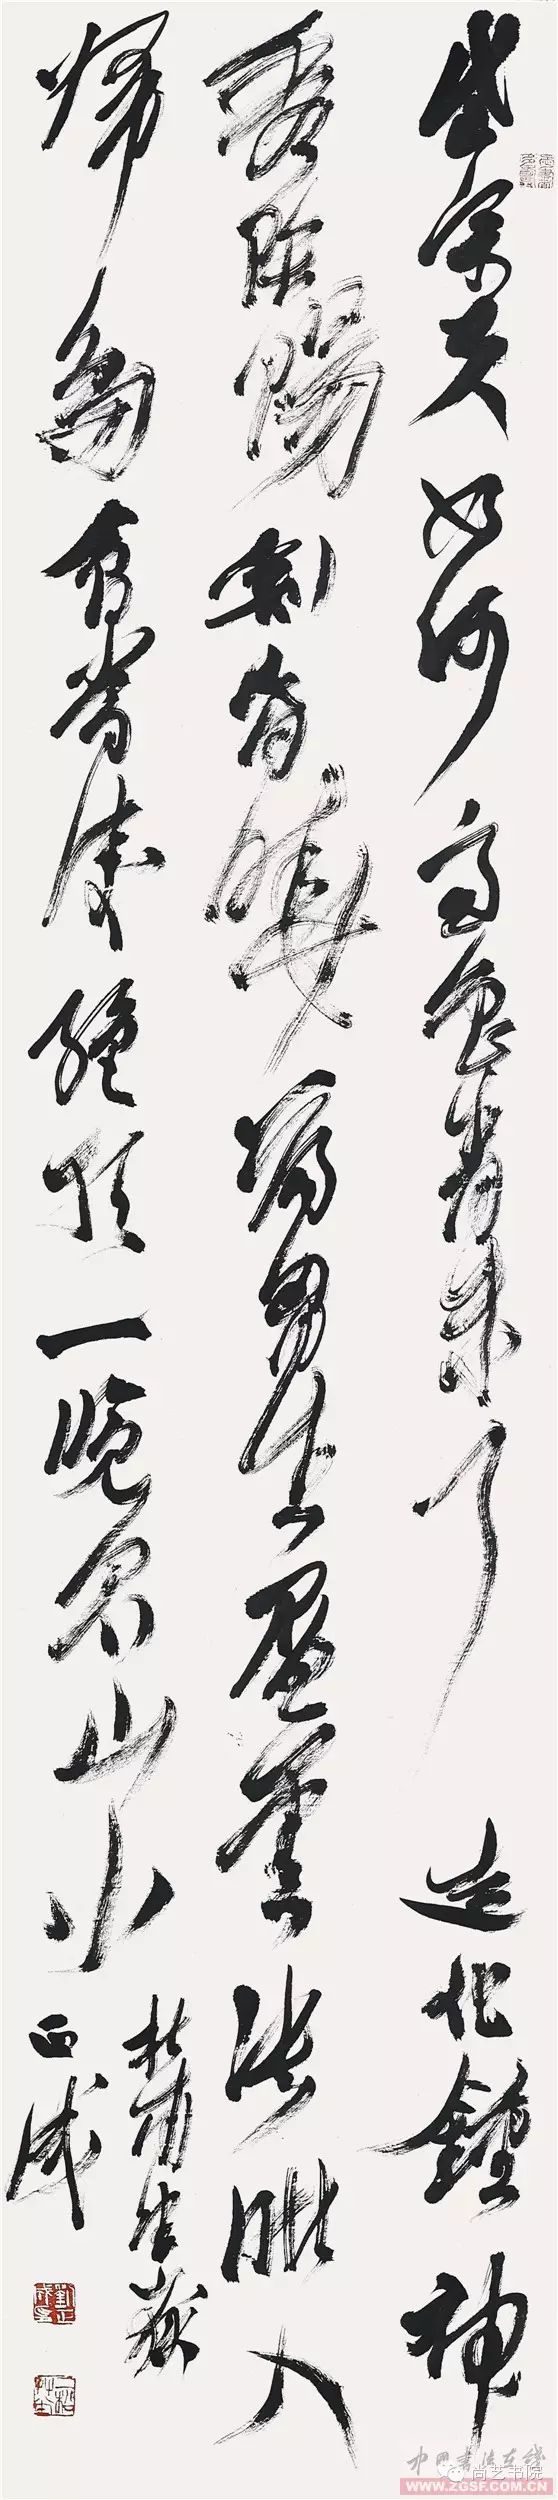 岱宗夫如何齊魯青未了造化鍾神
秀陰陽割昏曉蕩胸生層雲決眦入
歸鳥會當凌絕頂一覽眾山小
杜甫望嶽
正成
劉正成
中国书法在线
尚艺书院
WWW.ZGSF.COM.CN